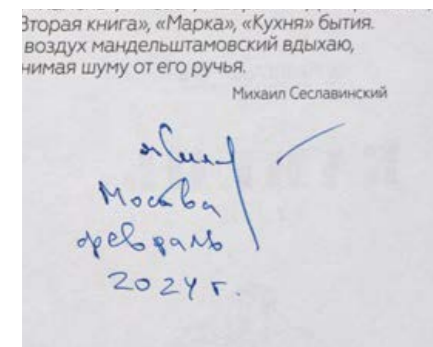 Вторая книга», «Марка», «Кухня» бытия.
воздух мандельштамовский вдыхаю,
нимая шуму от его ручья.
Михаил Сеславинский
Москва
февраль
2024 г.